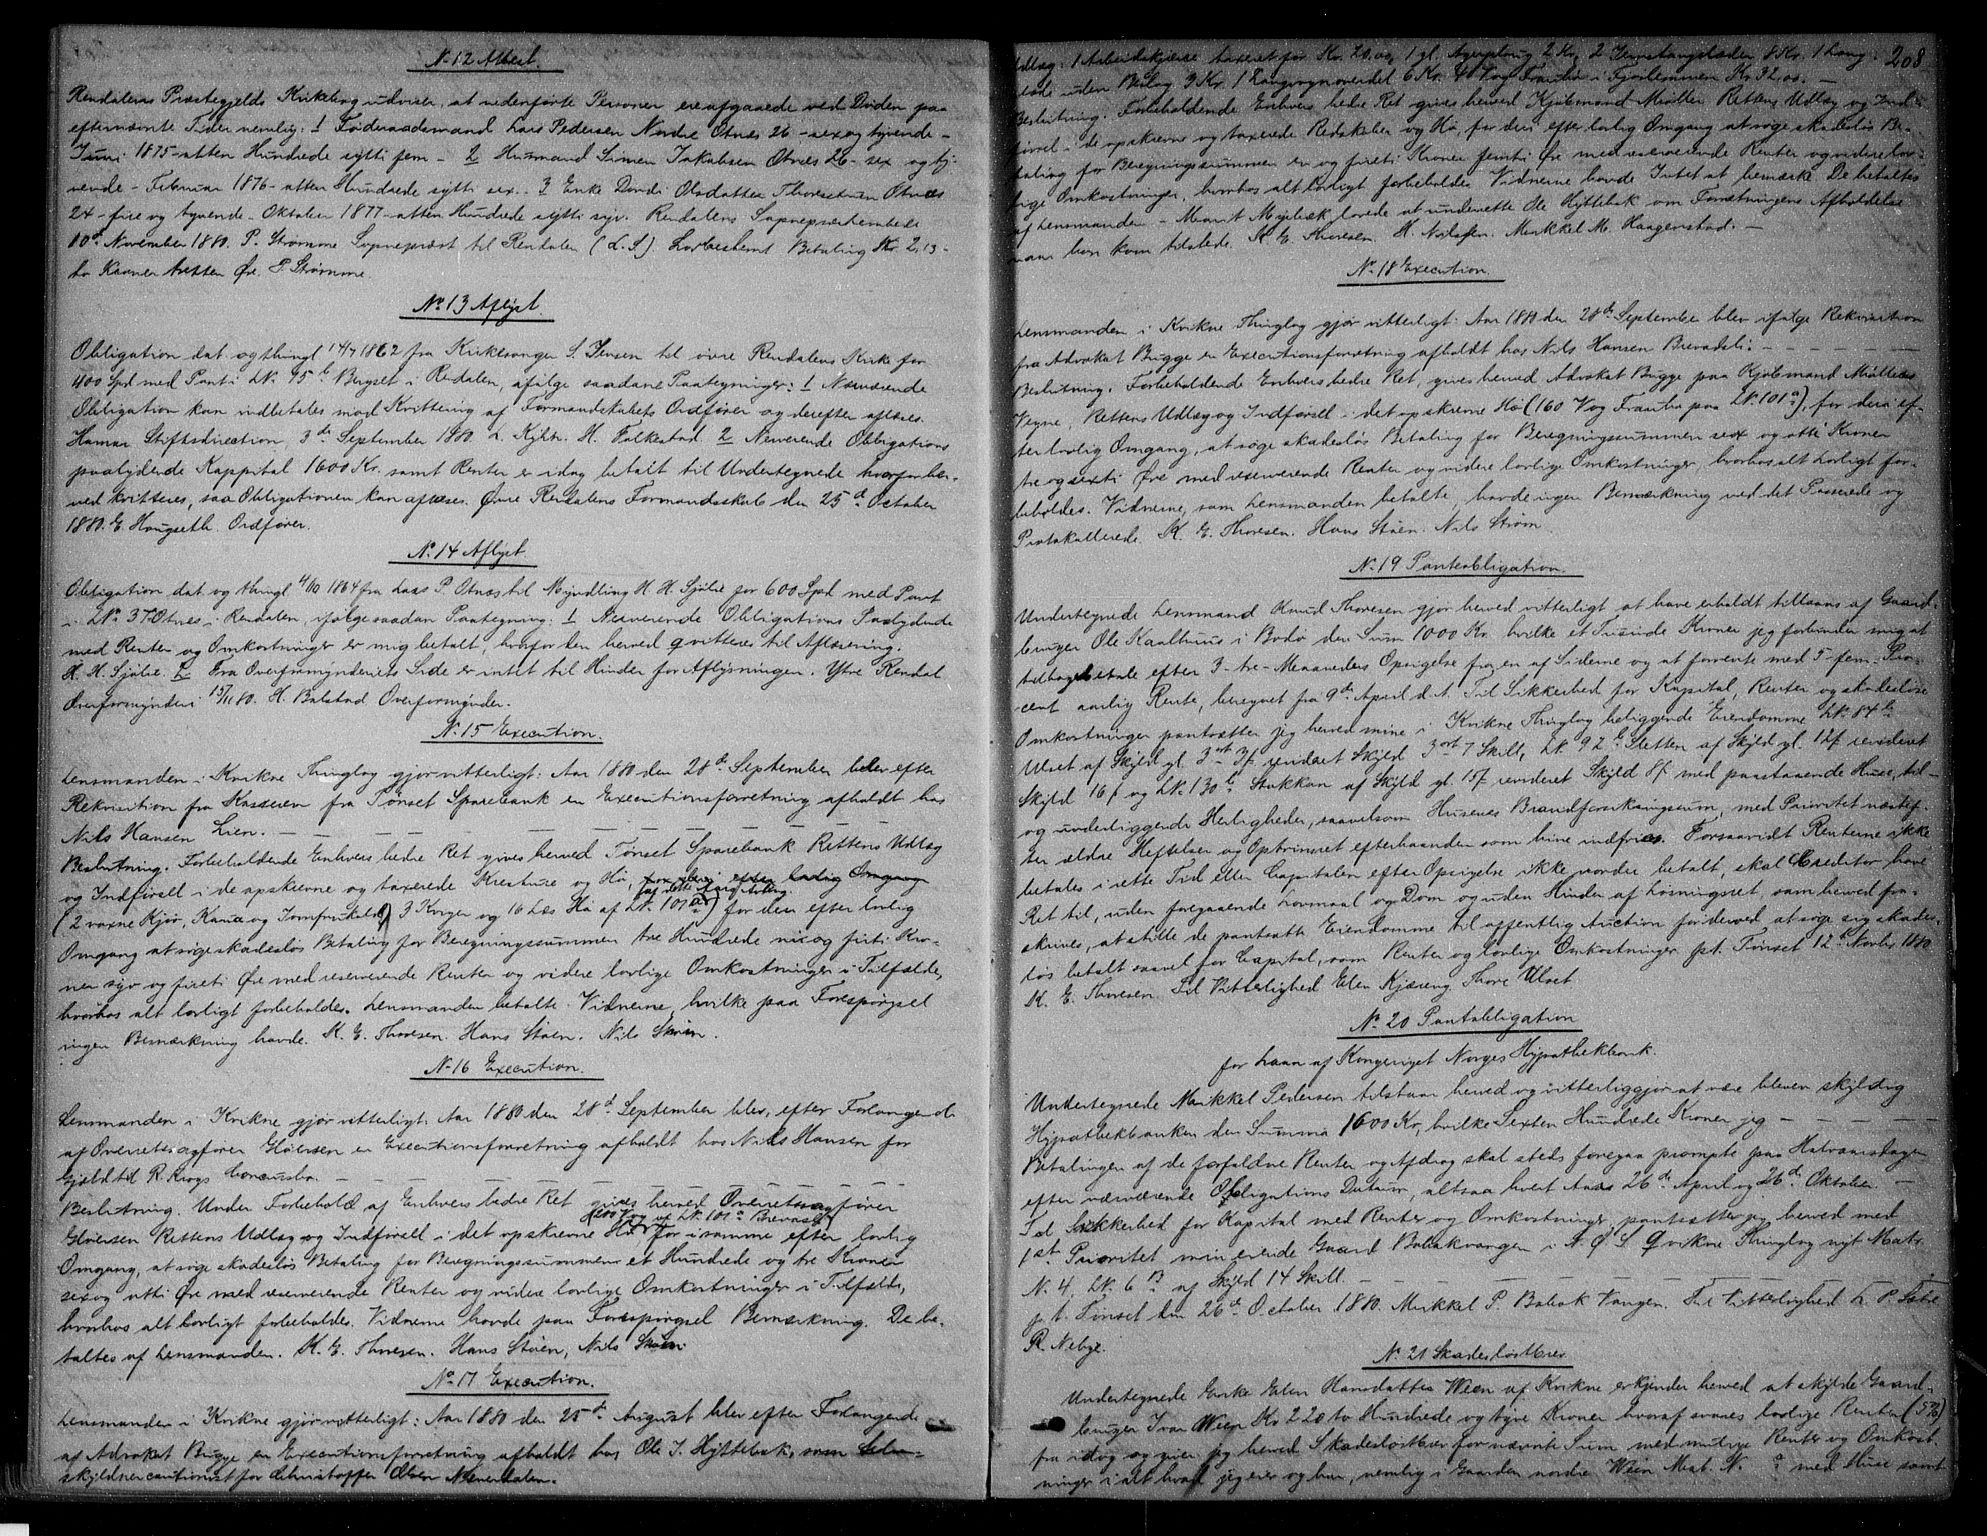 No 12 Attest.
Rendalens Præstegjelds Kirkebog udviser, at nedenførte Personer ere afgaaede ved Døden paa
efternævnte Tider nemlig: 1 Føderaadsmand Lars Pedersen Nordre Otnes 26 - sex og tyvende -
Juni 1875 - atten Hundrede sytti fem - 2 Husmand Simen Jakobsen Otnes 26 - sex og ty-
vende - Februar 1876 - atten Hundrede sytti sex. 3 Enke Dordi Olsdatter Thorestuen Otnes
24 - fire og tyvende - Oktober 1877 - atten Hundrede sytti syv. Rendalens Sognepræsteembede
10de November 1880. P. Strømme Sognepræst til Rendalen (L.S.) Lovbestemt Betaling Kr. 2,13 -
to Kroner tretten Øre. P. Strømme
No 13 Aflyst.
Obligation dat. og thingl. 14/7 1862 fra Kirkesanger S. Jensen til øvre Rendalens Kirke for
400 Spd med Pant i LN. 75 b Bergset i Rendalen, ifølge saadane Paategninger: 1 Nærværende
Obligation kan indbetales mod Kvittering af Formandskabets Ordfører og derefter aflæses.
Hamar Stiftsdirection, 3de September 1880. H. Folkestad 2 Nærværende Obligations
paalydende Kappital 1600 Kr. samt Renter er idag betalt til Undertegnede hvorfor her-
ved kvitteres, saa Obligationen kan aflæses. Øvre Rendalens Formandsskab den 25de October
1880. E. Hougseth. Ordfører.
No 14 Aflyst.
Obligation dat. og thingl. 4/10 1864 fra Lars P. Otnes til Myndling H. H. Sjølie for 600 Spd med Pant
i LNo 37 Otnes i Rendalen, ifølge saadan Paategning: 1 Nærværende Obligations Paalydende
med Renter og Omkostninger er mig betalt, hvorfor den herved qvitteres til Aflæsning.
H. H. Sjølie. 2 Fra Overformynderiets Side er intet til Hinder for Aflysningen. Ytre Rendal
Overformynderi 15/11 80. H. Balstad Overformynder.
No 15 Execution.
Lensmanden i Kvikne Thinglag gjør vitterligt: Aar 1880 den 28de September blev efter
Rekvisition fra Kasseren fra Tønset Sparebank en Executionsforretning afholdt hos
Nils Hansen Lien. -
Beslutning. Forbeholdende Enhvers bedre Ret gives herved Tønset Sparebank Rettens Udlæg
og Indførsel i de opskrevne og taxerede Kreature og Hø, for deri efter lovlig Omgang
(2 voxne Kjør, Kana og Jomfrukold) 3 Kviger og 16 Læs Hø af LN. 101 a) for deri efter lovlig
Omgang at søge skadesløs Betaling for Beregningssummen tre Hundrede ni og firti Kro-
ner syv og fireti Øre med reserverende Renter og videre lovlige Omkostninger i Tilfælde,
hvorhos alt lovligt forbeholdes. Lensmanden betalte Vidnerne, hvilke paa Forespørgsel
ingen Bemærkning havde. K. E. Thoresen. Hans Støen. Nils Strøm.
No 16 Execution.
Lensmanden i Kvikne gjør vitterligt: Aar 1880 den 28de September blev, efter Forlangende
af Overretssagfører Gløersen en Executionsforretning afholdt hos Nils Hansen for
Gjæld til R. Krogs Concursbo. -
Beslutning. Under Forbehold af Enhvers bedre Ret gives herved Overretssagfører
(200 Vog af LN. 101 a Brevads)
Gløersen Rettens Udlæg og Indførsell i det opskrevne Hø for i samme efter lovlig
Omgang, at søge skadesløs Betaling for Beregningssummen et Hundrede og tre Kroner
sex og otti Øre med reserverende Renter og videre lovlige Omkostninger i Tilfælde,
hvorhos alt lovligt forbeholdes. Vidnerne havde paa Forespørgsel Bemærkning. De be-
taltes af Lensmanden. K. E. Thoresen. Hans Støen, Nils Strøm
No 17 Execution.
Lensmanden i Kvikne gjør vitterligt: Aar 1880 den 25de August blev efter Forlangende
af Advokat Bugge en Executionsforretning afholdt hos Ole J. Hyttebak, som Selv-
skyldnercautionist for Christoffer Olsen Næverdalen.
208
Udlæg: 1 Arbeidskjærre taxeret for Kr. 20,00, 1 gl. Agerploug 2 Kr, 2 Jernstangslæder 8 Kr. 1 Lang-
slæde uden Beslag 3 Kr. 1 Langvognoverdel 6 Kr. 40 Vog Frauhø i Fjøslemmen Kr 32,00. -
Beslutning. Forbeholdende Enhvers bedre Ret gives herved Kjøbmand Møller Rettens Udlæg og Ind-
førsel i de opskrevne og taxerede Redskaber og Hø, for deri efter lovlig Omgang at søge skadesløs Be-
taling for Beregningssummen en og firti Kroner femti Øre med reserverende Renter og videre lov-
lige Omkostninger, hvorhos alt lovligt forbeholdes. Vidnerne havde Intet at bemærke. De betaltes
af Lensmanden - Marit Mejebak lovede at underrette Ole Hyttebak om Forretningens Afholdelse
naar han kom tilstede. K. E. Thoresen. H. Nilsen. Mikkel M. Haagenstad. -
No 18 Execution.
Lensmanden i Kvikne Thinglag gjør vitterligt: Aar 1880 den 28de September blev ifølge Rekvisition
fra Advokat Bugge en Executionsforretning afholdt hos Nils Hansen Brevadli: -
Beslutning. Forbeholdende Enhvers bedre Ret, gives herved Advokat Bugge paa Kjøbmand Møllers
Vegne, Rettens Udlæg og Indførsel i det opskrevne Hø (160 Vog Frauhø paa LN. 101 a), for deri ef-
ter lovlig Omgang, at søge skadesløs Betaling for Beregningssummen sex og otti Kroner
tre og sexti Øre med reserverende Renter og videre lovlige Omkostninger, hvorhos alt lovligt for-
beholdes. Vidnerne, som Lensmanden betalte, havde ingen Bemærkning ved det Passerede og
Protokollerede. K. E. Thoresen. Hans Støen. Nils Strøm
No 19 Pantobligation.
Undertegnede Lensmand Knud Thoresen gjør herved vitterligt at have erholdt tillaans af Gaard-
bruger Ole Kaalhuus i Bodø den Sum 1000 Kr. hvilke et Tusinde Kroner jeg forbinder mig at
tilbagebetale efter 3 - tre - Maaneders Opsigelse fra en af Siderne og at forrente med 5 - fem - Pro-
cent aarlig Rente, beregnet fra 9de April d. A. Til Sikkerhed for Kapital, Renter og skadesløse
Omkostninger pantsætter jeg herved mine i Kvikne Thinglag beliggende Eiendomme LN. 84 b
Ulset af Skyld gl. 3 ort 3 ß revideret Skyld 3 ort 7 Skill, LN. 92 b Sletten af Skyld gl. 12 ß revideret
Skyld 16 ß og LN. 130 b Stokkan af Skyld gl. 15 ß revideret Skyld 8 ß med paastaaende Huse, til-
og underliggende Herligheder, saavelsom Husenes Brandforsikringssum, med Prioritet næstef-
ter ældre Heftelser og Optrinsret efterhaanden som hine indfries. Forsaavidt Renterne ikke
betales i rette Tid eller Capitalen efter Opsigelse ikke vorder betalt, skal Creditor have
Ret til, uden foregaaende Lovmaal og Dom og uden Hinder af Løsningsret, som herved fra-
skrives, at stille de pantsatte Eiendomme til offentlig Auction for derved at søge sig skades-
løs betalt saavel for Capital, som Renter og lovlige Omkostninger. p.t. Tønset 12te Novbr 1880
K. E. Thoresen. Til Vitterlighed Eden Kjæreng. Thore Ulset.
No 20 Pantobligation
for Laan af Kongeriget Norges Hypothekbank.
Undertegnede Mikkel Pedersen tilstaar herved og vitterliggjør at være bleven skyldig
Hypothekbanken den Summa 1600 Kr, hvilke Sexten Hundrede Kroner jeg -
Betalingen af de forfaldne Renter og Afdrag skal steds foregaa prompte paa Halvaarsdagen
efter nærværende Obligations Datum, altsaa hvert Aars 26de April og 26de Oktober. -
Til Sikkerhed for Kapital med Renter og Omkostninger, pantsætter jeg herved med
1st Prioritet min eiende Gaard Bubakvangen i N. Ø. S Qvikne Thinglag nyt Matr.
N. 4, LN. 6 B af Skyld 14 Skill. -
p.t. Tønset den 26de October 1880. Mikkel P. Bubak Vangen. Til Vitterlighed L. P.
R. Nebye.
No 21 Skadesløsbrev
Undertegnede Enke Eden Hansdatter Ween af Kvikne erkjender herved at skylde Gaard-
bruger Ivar Ween Kr 220 to Hundrede og tyve Kroner hvoraf svares lovlige Renter (5%)
fra idag og giver jeg herved Skadesløsbrev for nævnte Sum med mulige Renter og Omkost-
ninger i alt hvad jeg eier og har, nemlig i Gaarden nordre Ween Mat. N. a med Huse samt